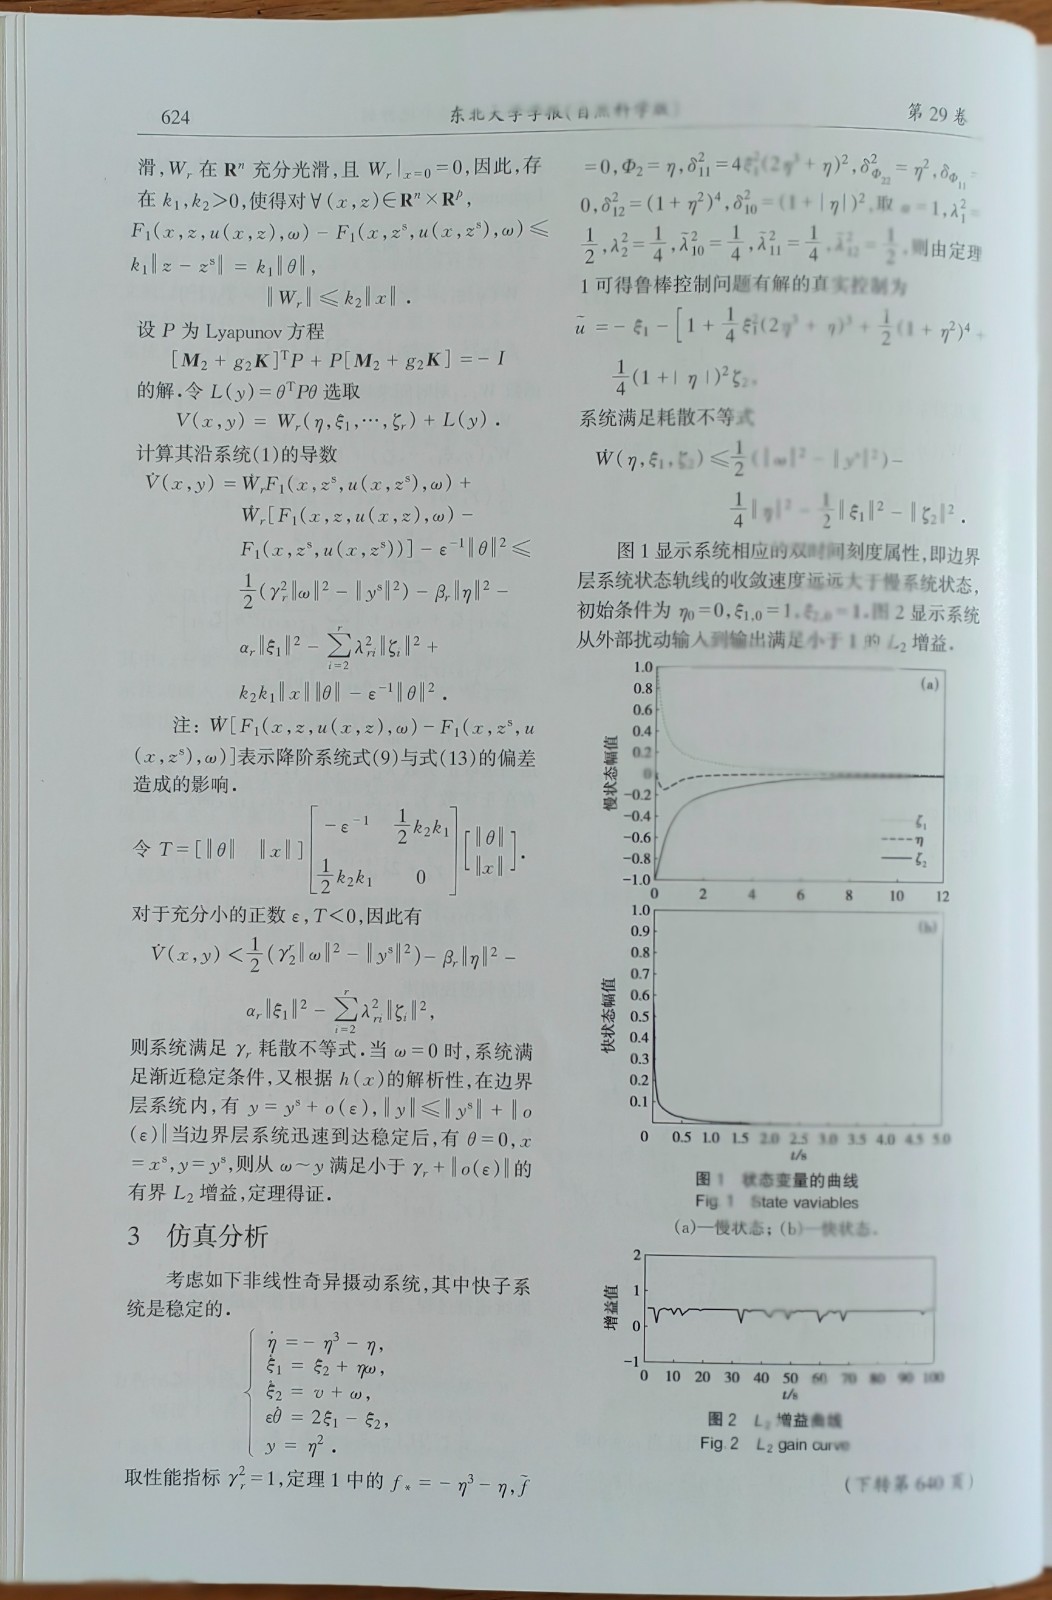 624
东北大学学报(自然科学版)
第29卷
滑,Wᵣ 在 Rⁿ 充分光滑,且 Wᵣ|ₓ₌₀=0,因此,存
在 k₁,k₂>0,使得对∀(x,z)∈Rⁿ×Rᵖ,
F₁(x,z,u(x,z),ω) − F₁(x,zˢ,u(x,zˢ),ω) ≤
k₁‖z − zˢ‖ = k₁‖θ‖,
‖Wᵣ‖ ≤ k₂‖x‖.
设 P 为 Lyapunov 方程
[M₂ + g₂K]ᵀP + P[M₂ + g₂K] = − I
的解.令 L(y)=θᵀPθ 选取
V(x,y) = Wᵣ(η,ξ₁,⋯,ζᵣ) + L(y).
计算其沿系统(1)的导数
V̇(x,y) = ẆᵣF₁(x,zˢ,u(x,zˢ),ω) +
Ẇᵣ[F₁(x,z,u(x,z),ω) −
F₁(x,zˢ,u(x,zˢ))] − ε⁻¹‖θ‖² ≤
1/2(γᵣ²‖ω‖² − ‖yˢ‖²) − βᵣ‖η‖² −
αᵣ‖ξ₁‖² − ∑ᵢ₌₂ʳ λᵣᵢ²‖ζᵢ‖² +
k₂k₁‖x‖‖θ‖ − ε⁻¹‖θ‖².
注: Ẇ[F₁(x,z,u(x,z),ω)−F₁(x,zˢ,u
(x,zˢ),ω)]表示降阶系统式(9)与式(13)的偏差
造成的影响.
令 T=[‖θ‖ ‖x‖][−ε⁻¹ 1/2 k₂k₁; 1/2 k₂k₁ 0][‖θ‖; ‖x‖].
对于充分小的正数 ε,T<0,因此有
V̇(x,y) < 1/2(γ₂ʳ‖ω‖² − ‖yˢ‖²) − βᵣ‖η‖² −
αᵣ‖ξ₁‖² − ∑ᵢ₌₂ʳ λᵣᵢ²‖ζᵢ‖²,
则系统满足 γᵣ 耗散不等式.当 ω=0 时,系统满
足渐近稳定条件,又根据 h(x)的解析性,在边界
层系统内,有 y=yˢ+o(ε),‖y‖≤‖yˢ‖+‖o
(ε)‖当边界层系统迅速到达稳定后,有 θ=0,x
=xˢ,y=yˢ,则从 ω~y 满足小于 γᵣ+‖o(ε)‖的
有界 L₂ 增益,定理得证.
3 仿真分析
考虑如下非线性奇异摄动系统,其中快子系
统是稳定的.
η̇ = − η³ − η,
ξ̇₁ = ξ₂ + ηω,
ξ̇₂ = v + ω,
εθ̇ = 2ξ₁ − ξ₂,
y = η².
取性能指标 γᵣ²=1,定理 1 中的 f* = − η³ − η, f̃
=0,Φ₂=η,δ₁₁²=4ξ₁²(2η³+η)²,δ²_Φ₂₂=η²,δ_Φ₁₁=
0,δ₁₂²=(1+η²)⁴,δ₁₀²=(1+|η|)²,取 =1,λ₁²=
1/2,λ₂²=1/4,λ̃₁₀²=1/4,λ̃₁₁²=1/4,λ̃₁₂²=1/2,则由定理
1 可得鲁棒控制问题有解的真实控制为
ũ = − ξ₁ − [1 + 1/4 ξ₁²(2η³ + η)³ + 1/2(1 + η²)⁴ +
1/4(1+|η|)²ζ₂.
系统满足耗散不等式
Ẇ(η,ξ₁,ζ₂) ≤ 1/2(‖ω‖² − ‖yˢ‖²) −
1/4‖η‖² − 1/2‖ξ₁‖² − ‖ζ₂‖².
图 1 显示系统相应的双时间刻度属性,即边界
层系统状态轨线的收敛速度远远大于慢系统状态,
初始条件为 η₀=0,ξ₁,₀=1,ξ₂,₀=1.图 2 显示系统
从外部扰动输入到输出满足小于 1 的 L₂ 增益.
慢状态幅值
1.0
0.8
0.6
0.4
0.2
0
−0.2
−0.4
−0.6
−0.8
−1.0
(a)
ζ₁
η
ζ₂
0 2 4 6 8 10 12
快状态幅值
1.0
0.9
0.8
0.7
0.6
0.5
0.4
0.3
0.2
0.1
(b)
0 0.5 1.0 1.5 2.0 2.5 3.0 3.5 4.0 4.5 5.0
t/s
图 1 状态变量的曲线
Fig. 1 State vaviables
(a)—慢状态; (b)—快状态.
增益值
2
1
0
−1
0 10 20 30 40 50 60 70 80 90 100
t/s
图 2 L₂ 增益曲线
Fig. 2 L₂ gain curve
(下转第 640 页)